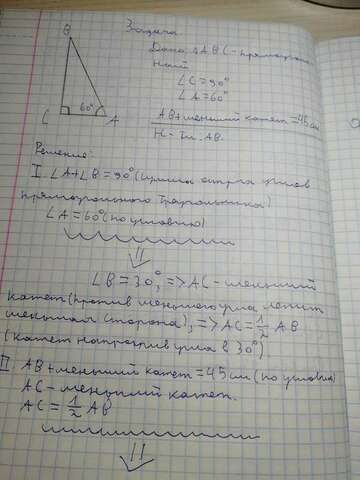 Задача
B
Дано: △ABC - прямоуголь
ный
∠C=90°
∠A=60°
60°
C
A
AB+меньший катет=45см
Н-ти: AB.
Решение:
I. ∠A+∠B=90° (сумма острых углов
прямоугольного треугольника)
∠A=60° (по условию)
∠B=30°, => AC - меньший
катет (против меньшего угла лежит
меньшая сторона), => AC=1/2 AB
(катет напротив угла в 30°)
II. AB+меньший катет=45см (по условию)
AC - меньший катет.
AC=1/2 AB